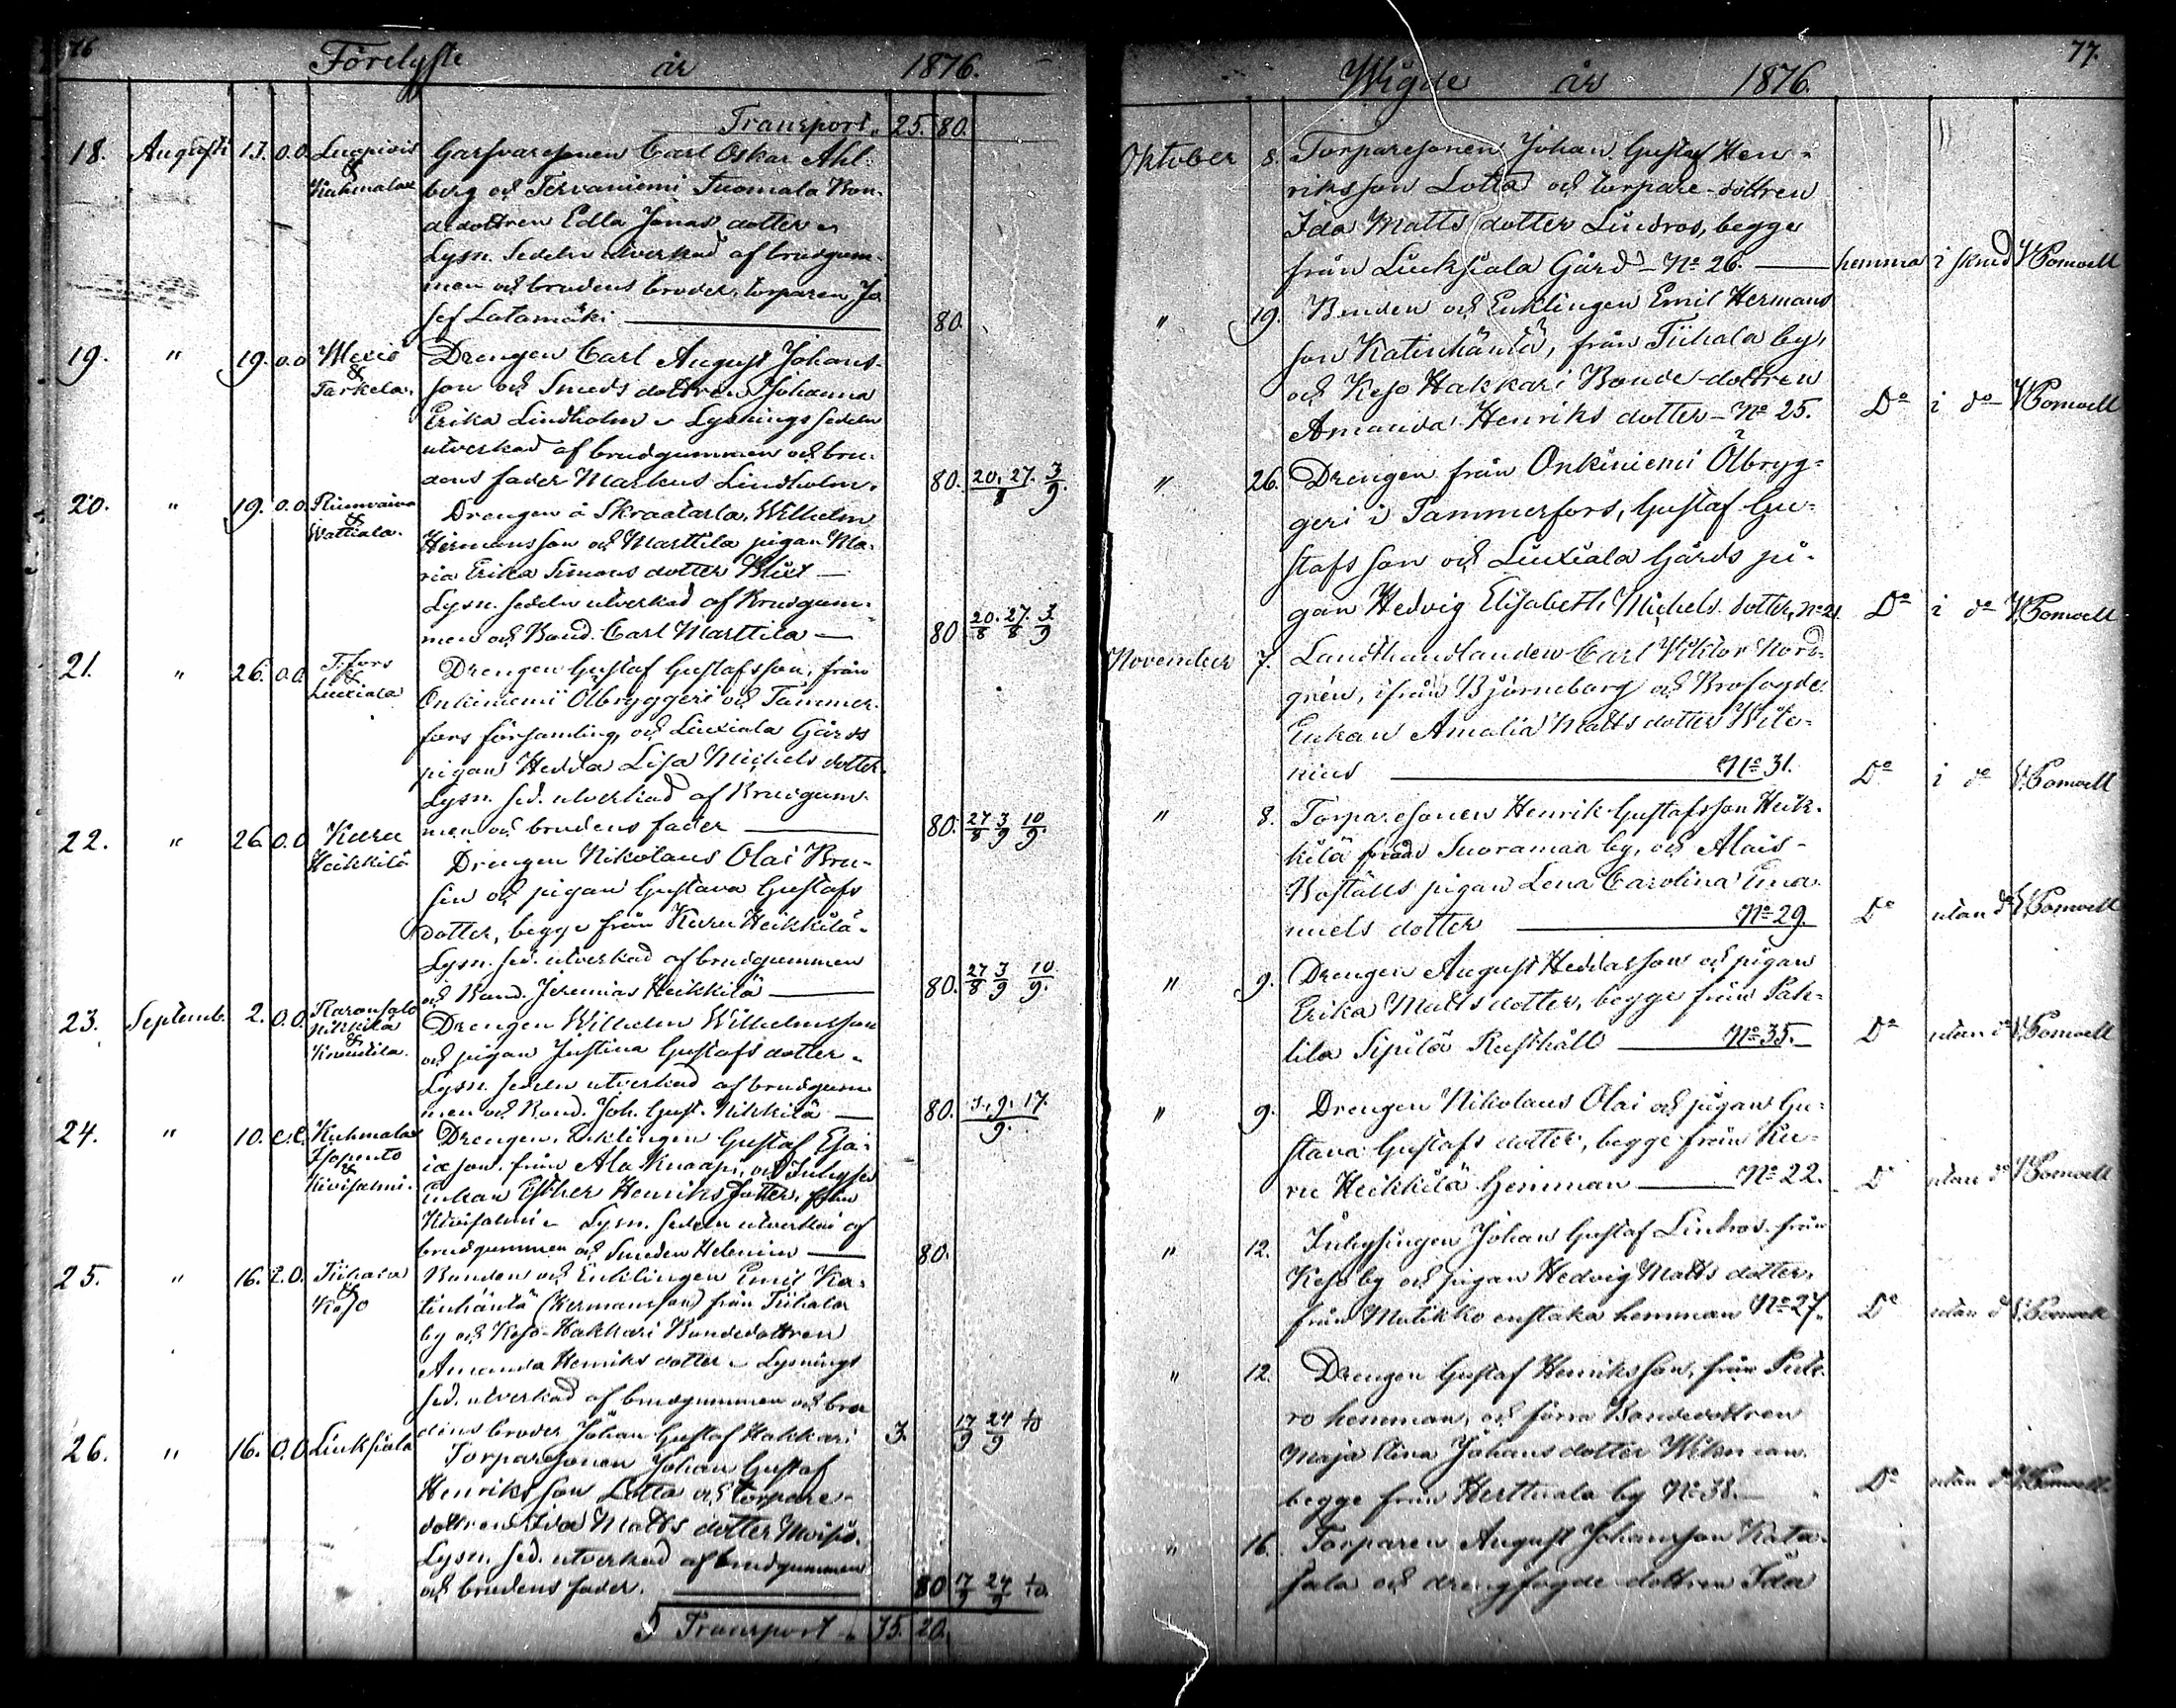 76
Förelyste år 1876.
Transport 25. 80.
18. Augusti 17. 0.0. Luopiois & Kuhmalax
Garfvaresonen Carl Oskar Ahl-
berg och Tervaniemi Tuomala Bon-
dedottren Edla Jonas dotter
Lysn. Sedeln utverkad af brudgum-
men och brudens broder, torparen Jo-
sef Latomäki 80.
19. " 19. 0.0 & Tarkela.
Drengen Carl August Johans-
son och Smeds dottren Johanna
Erika Lindholm Lysnings sedeln
utverkad af brudgummen och bru-
dens fader Markus Lindholm. 80. 20. 27. 3/9.
20. " 19. 0.0. &
Drengen å Skraatarla, Wilhelm
Hermansson och Marttila pigan Ma-
ria Erika Simons dotter Blixt
Lysn. sedeln utverkad af Brudgum-
men och Bond. Carl Marttila 80 20/8. 27/8. 3/9
21. " 26. 0.0. T:fors & Liuxiala
Drengen Gustaf Gustafsson, från
Onkiniemi Ölbryggeri och Tammer-
fors församling, och Liuxiala Gårds
pigan Hedda Lisa Michels dotter.
Lysn. sed. utverkad af Brudgum-
men och brudens fader 80. 27/8 3/9 10/9.
22. " 26. 0.0 Kuru Heikkilä
Drengen Nikolaus Olai Bru-
sin och pigan Gustava Gustafs
dotter, begge från Kuru Heikkilä
Lysn. sed. utverkad af brudgummen
och Bond. Jeremias Heikkilä 80. 27/8 3/9 10/9.
23. Septemb. 2. 0.0. Nikkilä &
Drengen Wilhelm Wilhelmsson
och pigan Justina Gustafs dotter
Lysn. sedeln utverkad af brudgum
men och Bond. Joh. Gust. Nikkilä 80. 3. 9. 17. 9.
24. " 10. Kuhmalax & Kivisalmi.
Drengen, Enklingen Gustaf Esa-
iæ son, från Ala Knaapi, och Inhyses
Enkan Esther Henriks dotter, från
Kivisalmi Lysn. sedeln utverkad af
brudgummen och Smeden Helenius 80.
25. " 16. 0. Tiihala & Keso
Bonden och Enklingen Emil Ka-
tinhäntä (Hermansson) från Tiihala
by och Keso-Hakkari Bondedottren
Amanda Henriks dotter Lysnings
sed. utverkad af brudgummen och bru
dens broder Johan Gustaf Hakkari 3. 17/9 24/9 1/10
26. " 16. 0.0 Liuksiala
Torparesonen Johan Gustaf
Henriksson Lotta och torpare-
dottren Ida Matts dotter
Lysn. sed. utverkad af brudgummen
och brudens fader. 80 17/9 24/9 1/10.
Transport 35. 20.
77.
Wigde år 1876.
Oktober 8. Torparesonen Johan Gustaf Hen-
riksson Lotta och torpare-dottren
Ida Matts dotter Lindros, begge
från Liuksiala Gård No 26. hemma i skrud
" 19. Bonden och Enklingen Emil Hermans
son Katinhäntä, från Tiihala by,
och Keso Hakkari Bonde-dottren
Amanda Henriks dotter No 25. Do i do
" 26. Drengen från Onkiniemi Ölbryg-
geri i Tammerfors, Gustaf Gu-
stafsson och Liuxiala Gårds pi-
gan Hedvig Elisabeth Michels dotter, No 21. Do i do
November 7. Landthandlanden Carl Viktor Nord-
grén, ifrån Björneborg och Brofogde
Enkan Amalia Matts dotter Wile-
nius No 31. Do i do
" 8. Torparesonen Henrik Gustafsson Heik-
kilä från Suoramaa by, och Alais-
Boställs pigan Lena Carolina Ema-
nuels dotter No 29. Do utan do
" 9. Drengen August Heddasson och pigan
Erika Matts dotter, begge från Pak-
lila Sipilä Rusthåll No 35. Do utan do
" 9. Drengen Nikolaus Olai och pigan Gu-
stava Gustafs dotter, begge från Ku-
ru Heikkilä Hemman No 22. Do utan do
" 12. Inhysingen Johan Gustaf Lindros från
Keso by och pigan Hedvig Matts dotter,
från Matikko enstaka hemman No 27. Do utan do
" 12. Drengen Gustaf Henriksson, från
ro hemman, och förra Bondedottren
Maja Stina Johans dotter Wikman
begge från Herttuala by No 38. Do utan do
" 16. Torparen August Johansson Kata-
sala och drengfogde dottren Ida